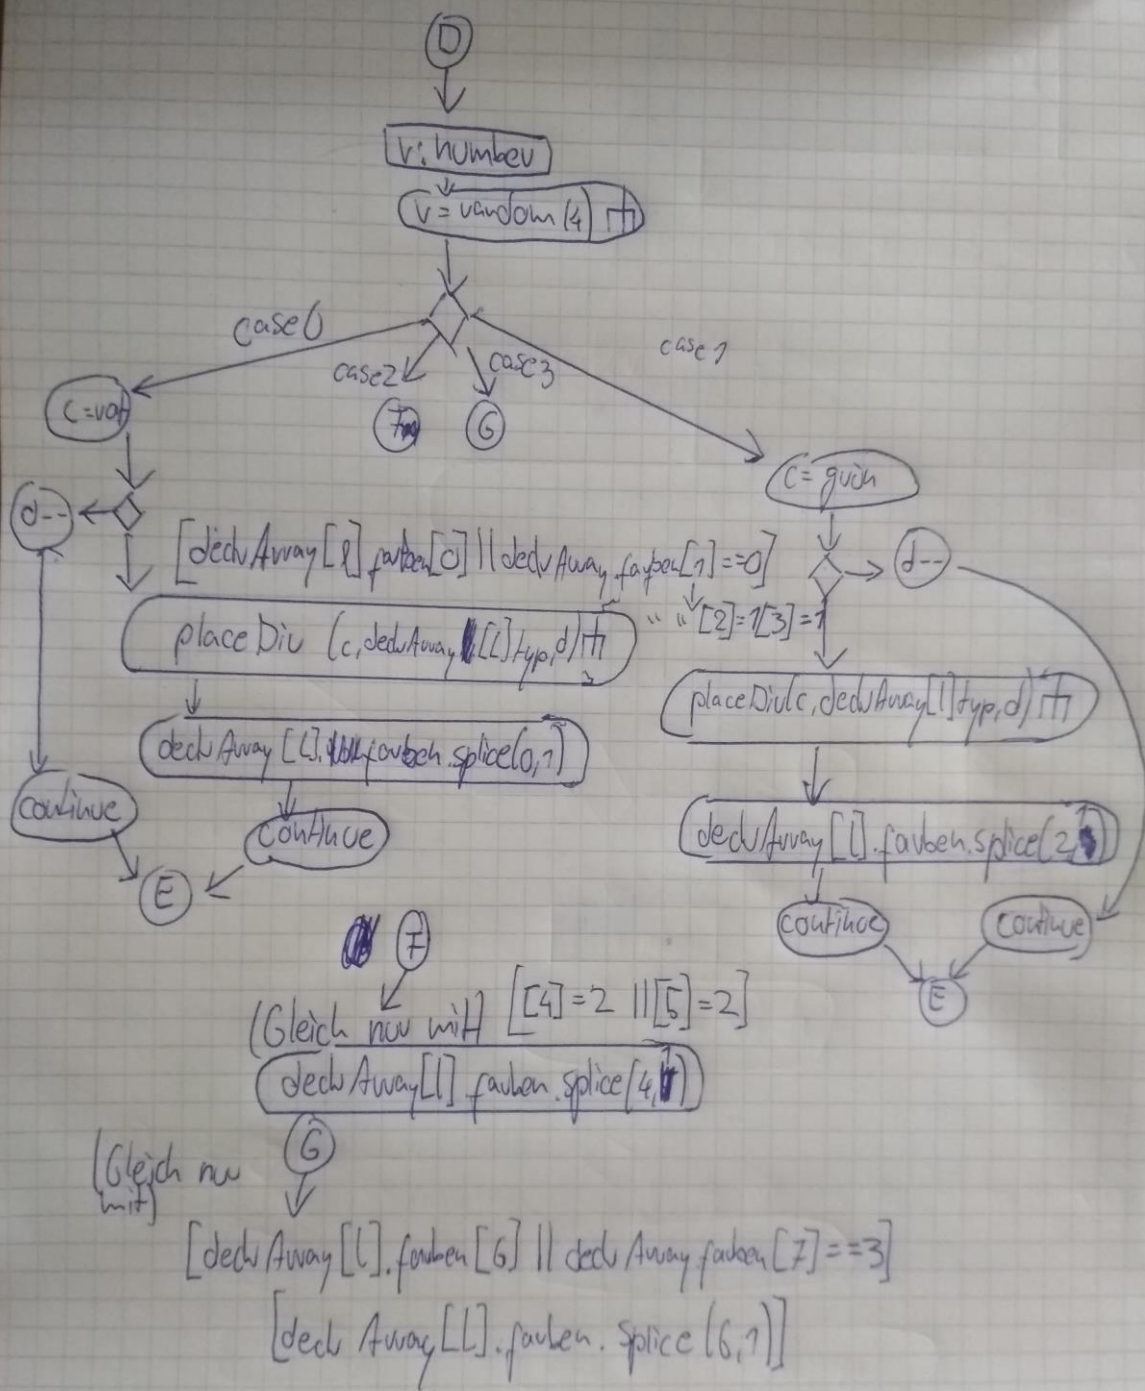 D
r: number
r = random (4)
case 0
case 2
case 3
case 1
c = rot
7
6
c = grün
d--
d--
[deckArray[l].farben[0] || deckArray.farben[1] == 0]
" " [2]=1[3]=1
placeDiv (c, deckArray[l]typ, d)
placeDiv(c, deckArray[l]typ, d)
deckArray[l].farben.splice(0,1)
continue
continue
deckArray[l].farben.splice(2,
E
continue
continue
7
E
(Gleich nur mit) [[4]=2 || [5]=2]
deckArray[l].farben.splice(4,1)
6
(Gleich nur
mit)
[deckArray[l].farben[6] || deckArray.farben[7]==3]
[deckArray[l].farben.splice(6,1)]